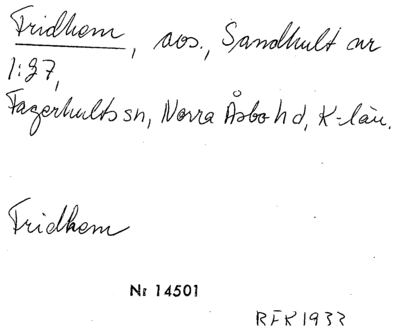 Fridhem, avs., Sandhult nr
1:37,
Fagerhults sn, Norra Åsbo hd, K-län.
Fridhem
Nr 14501
RFR 1933